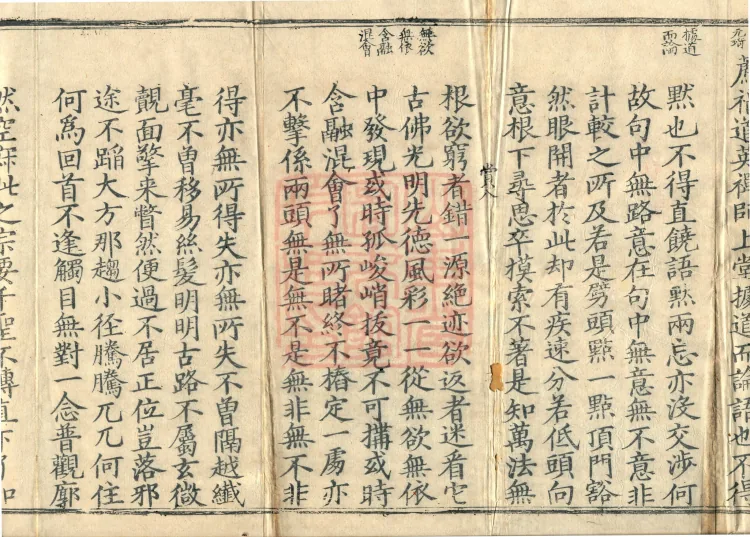 元琦
廣福道英禪師上堂據道而論語也不得
據道
而論
默也不得直饒語默兩忘亦沒交涉何
故句中無路意在句中無意無不意非
計較之所及若是劈頭點一點頂門豁
然眼開者於此却有疾速分若低頭向
意根下尋思卒摸索不著是知萬法無
根欲窮者錯一源絕迹欲返者迷看它
無欲
無依
含融
混會
古佛光明先德風彩一一從無欲無依
中發現或時孤峻峭拔竟不可搆或時
含融混會了無所睹終不樁定一處亦
不擊係兩頭無是無不是無非無不非
得亦無所得失亦無所失不曾隔越纖
毫不曾移易絲髮明明古路不屬玄微
覿面擎來瞥然便過不居正位豈落邪
途不蹈大方那趨小徑騰騰兀兀何住
何為回首不逢觸目無對一念普觀廓
然空寂此之宗要千聖不傳直下了知